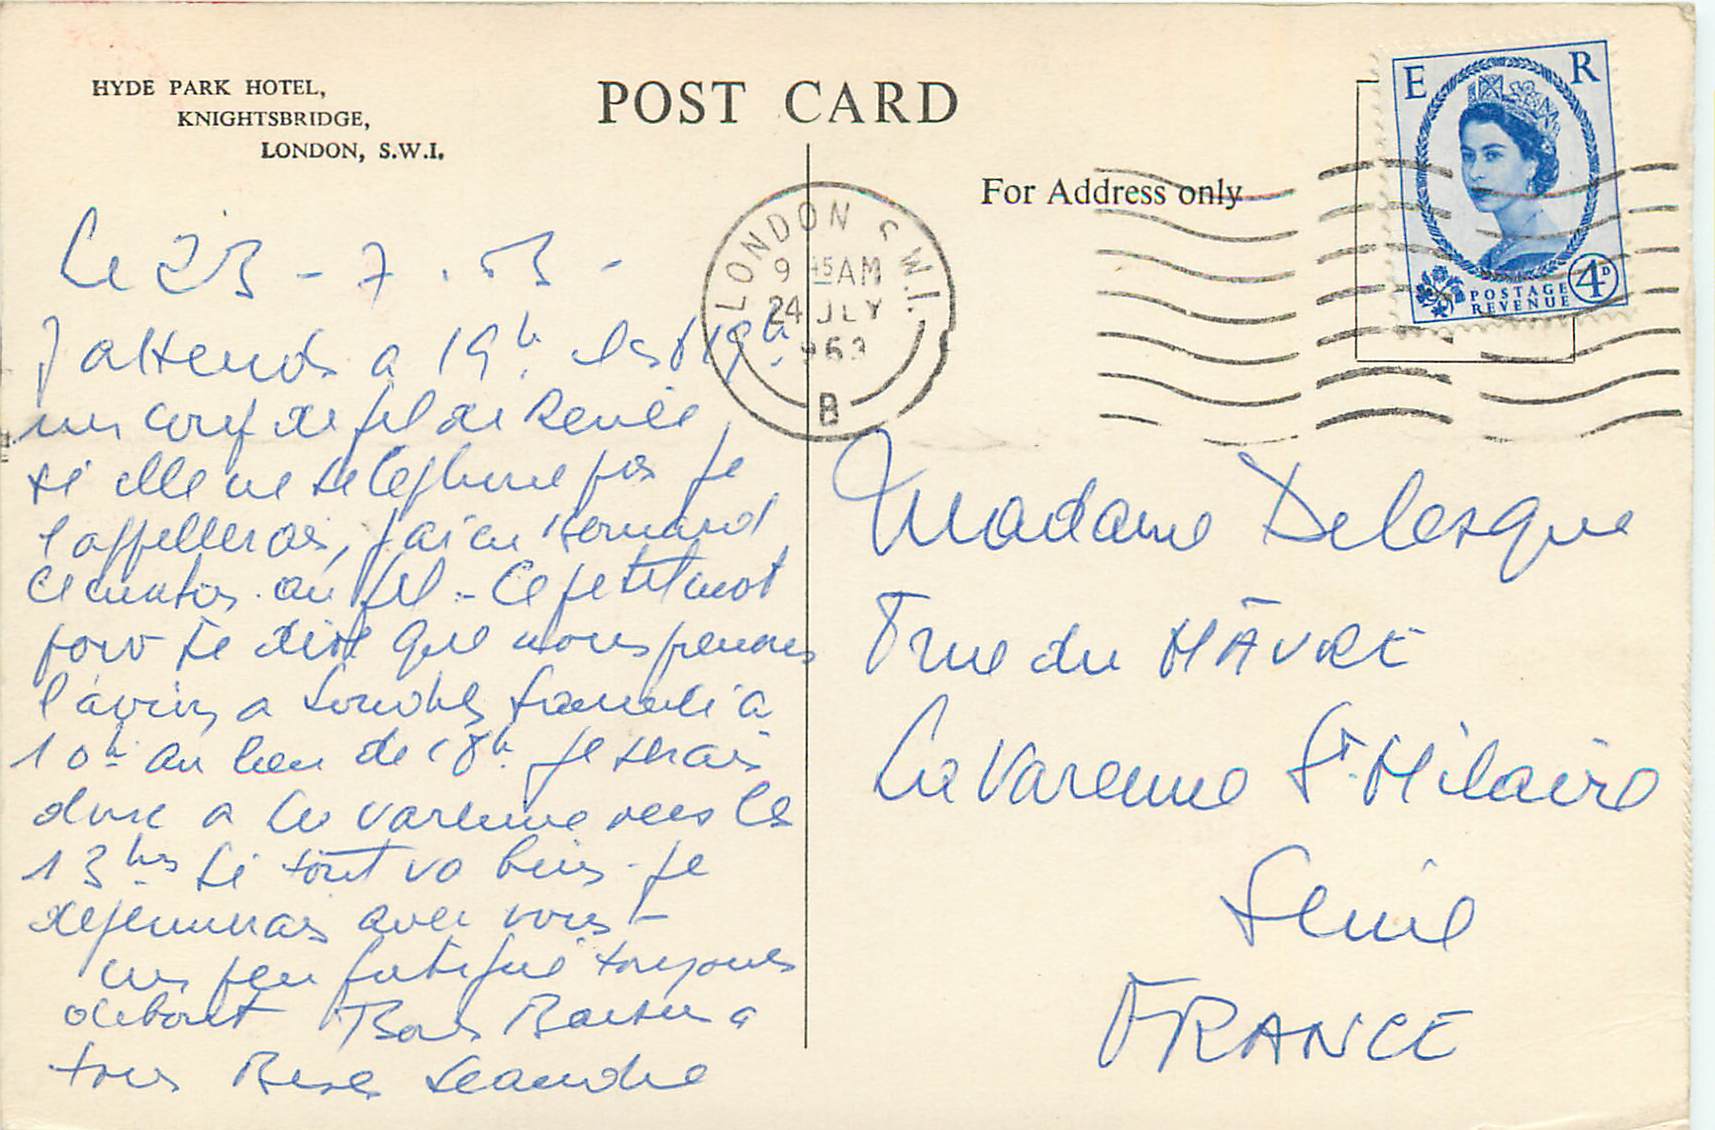 HYDE PARK HOTEL,
KNIGHTSBRIDGE,
LONDON, S.W.I.
POST CARD
For Address only
E R
POSTAGE
REVENUE
4D
LONDON S.W.1.
9 45AM
24 JLY
1963
B
Le 23 - 7 . 63 -
J attends a 19h. il est 19h.
un coup de fil de Renée,
si elle ne telephone pas je
l appellerais, j'ai eu Bernard
ce matin au fil - Ce petit mot
pour te dire que nous prenons
l'avion a Londres samedi a
10h au lieu de 18h. Je serais
donc a La Varenne vers les
13hrs si tout va bien. Je
dejeunerais avec vous -
un peu fatigué toujours
debout Bons Baisers a
tous Bises Leandre
Madame Delesque
rue du HÂVRE
La Varenne St. Hilaire
Seine
FRANCE